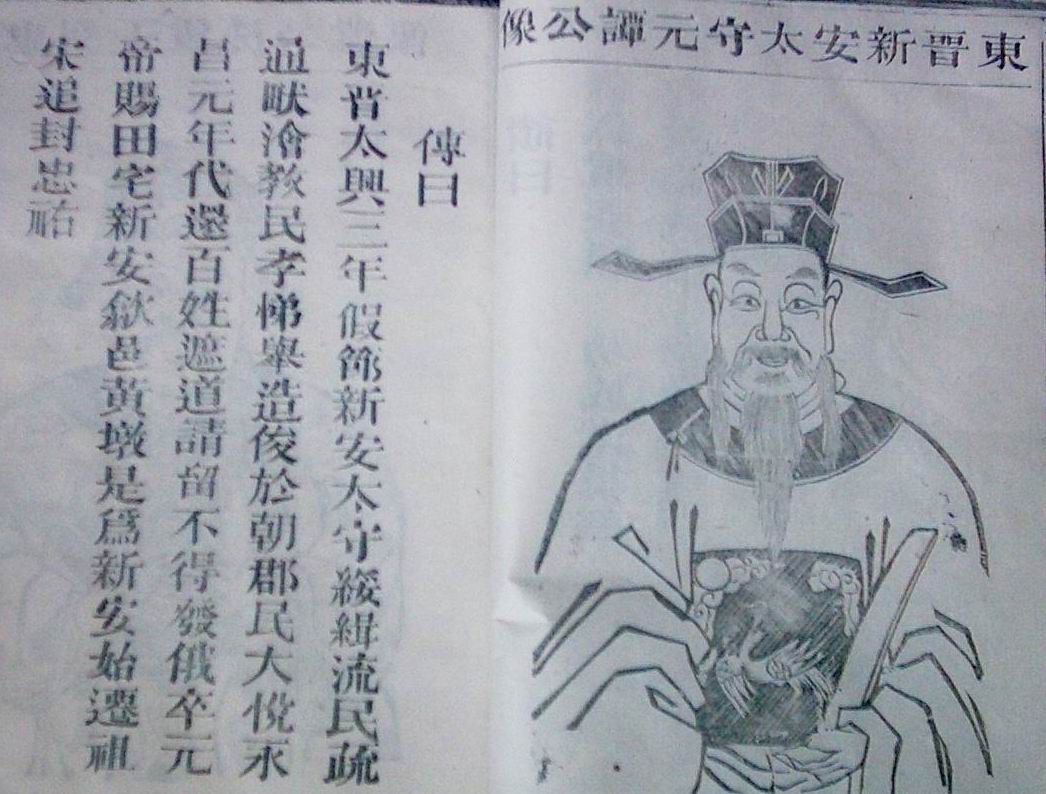 東晉新安太守元譚公像
傳曰
東晉太興三年假節新安太守綏緝流民疏
通畎澮教民孝悌舉造俊於朝郡民大悅永
昌元年代還百姓遮道請留不得發俄卒元
帝賜田宅新安歙邑黃墩是爲新安始遷祖
宋追封忠祐